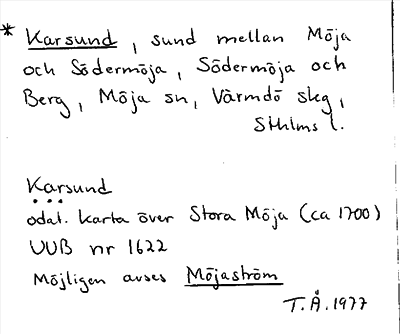 * Karsund, sund mellan Möja
och Södermöja, Södermöja och
Berg, Möja sn, Värmdö skg,
Sthlms l.
Karsund
odat. karta över Stora Möja (ca 1700)
UUB nr 1622
Möjligen avses Möjaström
T.Å. 1977